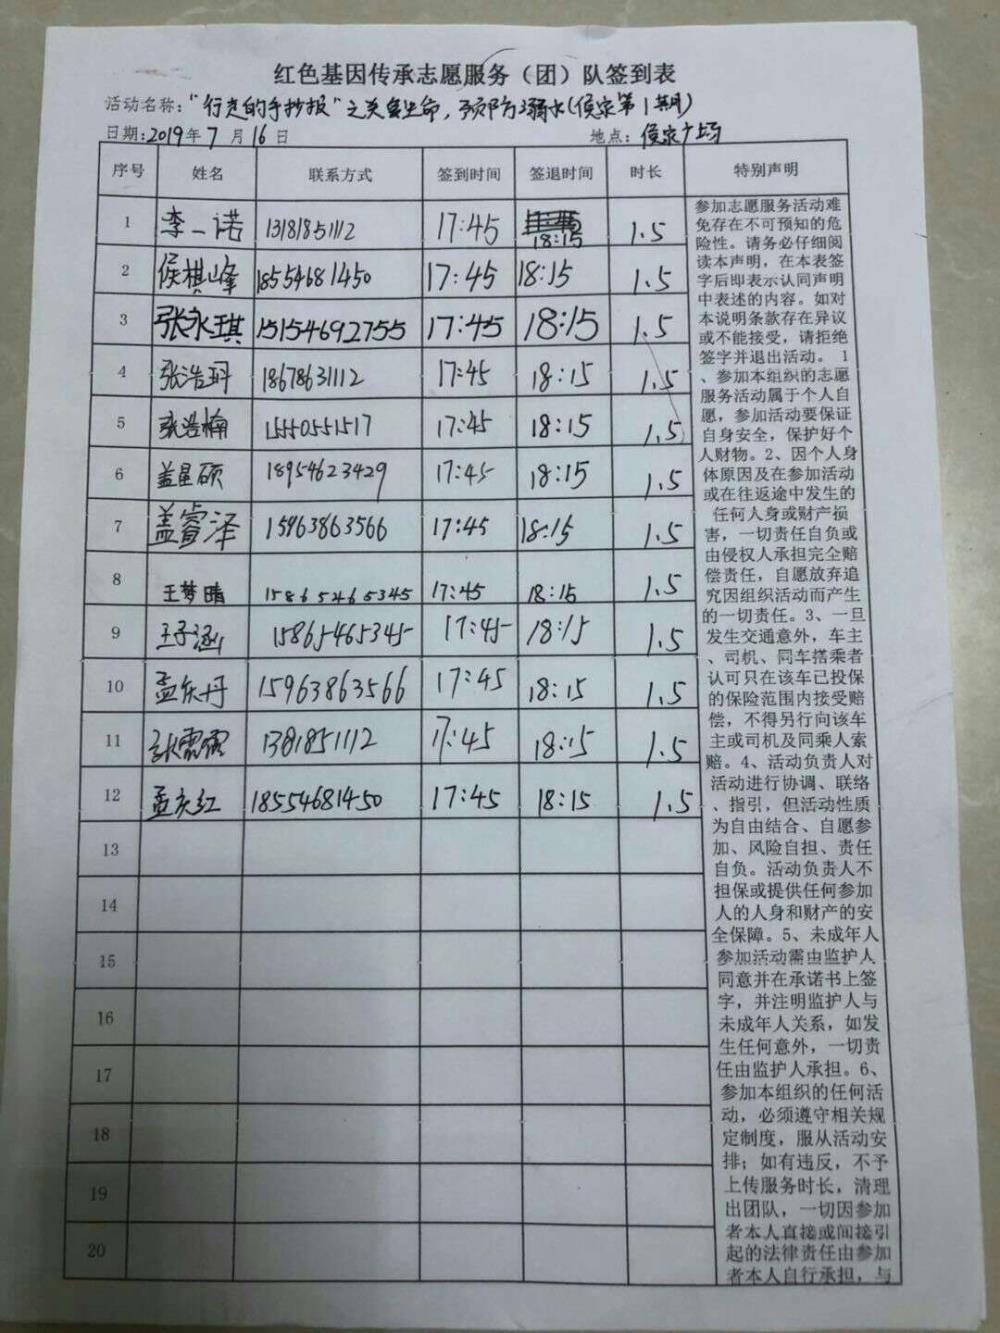 红色基因传承志愿服务（团）队签到表
活动名称：“行走的手抄报”之关爱生命，预防溺水(侯家第1期)
日期：2019年7月16日 地点：侯家广场
序号 姓名 联系方式 签到时间 签退时间 时长 特别声明
1 李一诺 13181851112 17:45 18:15 1.5
2 侯棋峰 18554681450 17:45 18:15 1.5
3 张永琪 15154692755 17:45 18:15 1.5
4 张浩珂 18678631112 17:45 18:15 1.5
5 张浩楠 15550551517 17:45 18:15 1.5
6 盖星硕 18954623429 17:45 18:15 1.5
7 盖睿泽 15963863566 17:45 18:15 1.5
8 王梦晴 15865465345 17:45 18:15 1.5
9 王子涵 15865465345 17:45 18:15 1.5
10 孟庆丹 15963863566 17:45 18:15 1.5
11 张霞霞 1381851112 17:45 18:15 1.5
12 孟庆红 18554681450 17:45 18:15 1.5
13
14
15
16
17
18
19
20
参加志愿服务活动难
免存在不可预知的危
险性。请务必仔细阅
读本声明，在本表签
字后即表示认同声明
中表述的内容。如对
本说明条款存在异议
或不能接受，请拒绝
签字并退出活动。1
、参加本组织的志愿
服务活动属于个人自
愿，参加活动要保证
自身安全，保护好个
人财物。2、因个人身
体原因及在参加活动
或在往返途中发生的
任何人身或财产损
害，一切责任自负或
由侵权人承担完全赔
偿责任，自愿放弃追
究因组织活动而产生
的一切责任。3、一旦
发生交通意外，车主
、司机、同车搭乘者
认可只在该车已投保
的保险范围内接受赔
偿，不得另行向该车
主或司机及同乘人索
赔。4、活动负责人对
活动进行协调、联络
、指引，但活动性质
为自由结合、自愿参
加、风险自担、责任
自负。活动负责人不
担保或提供任何参加
人的人身和财产的安
全保障。5、未成年人
参加活动需由监护人
同意并在承诺书上签
字，并注明监护人与
未成年人关系，如发
生任何意外，一切责
任由监护人承担。6、
参加本组织的任何活
动，必须遵守相关规
定制度，服从活动安
排；如有违反，不予
上传服务时长，清理
出团队，一切因参加
者本人直接或间接引
起的法律责任由参加
者本人自行承担，与